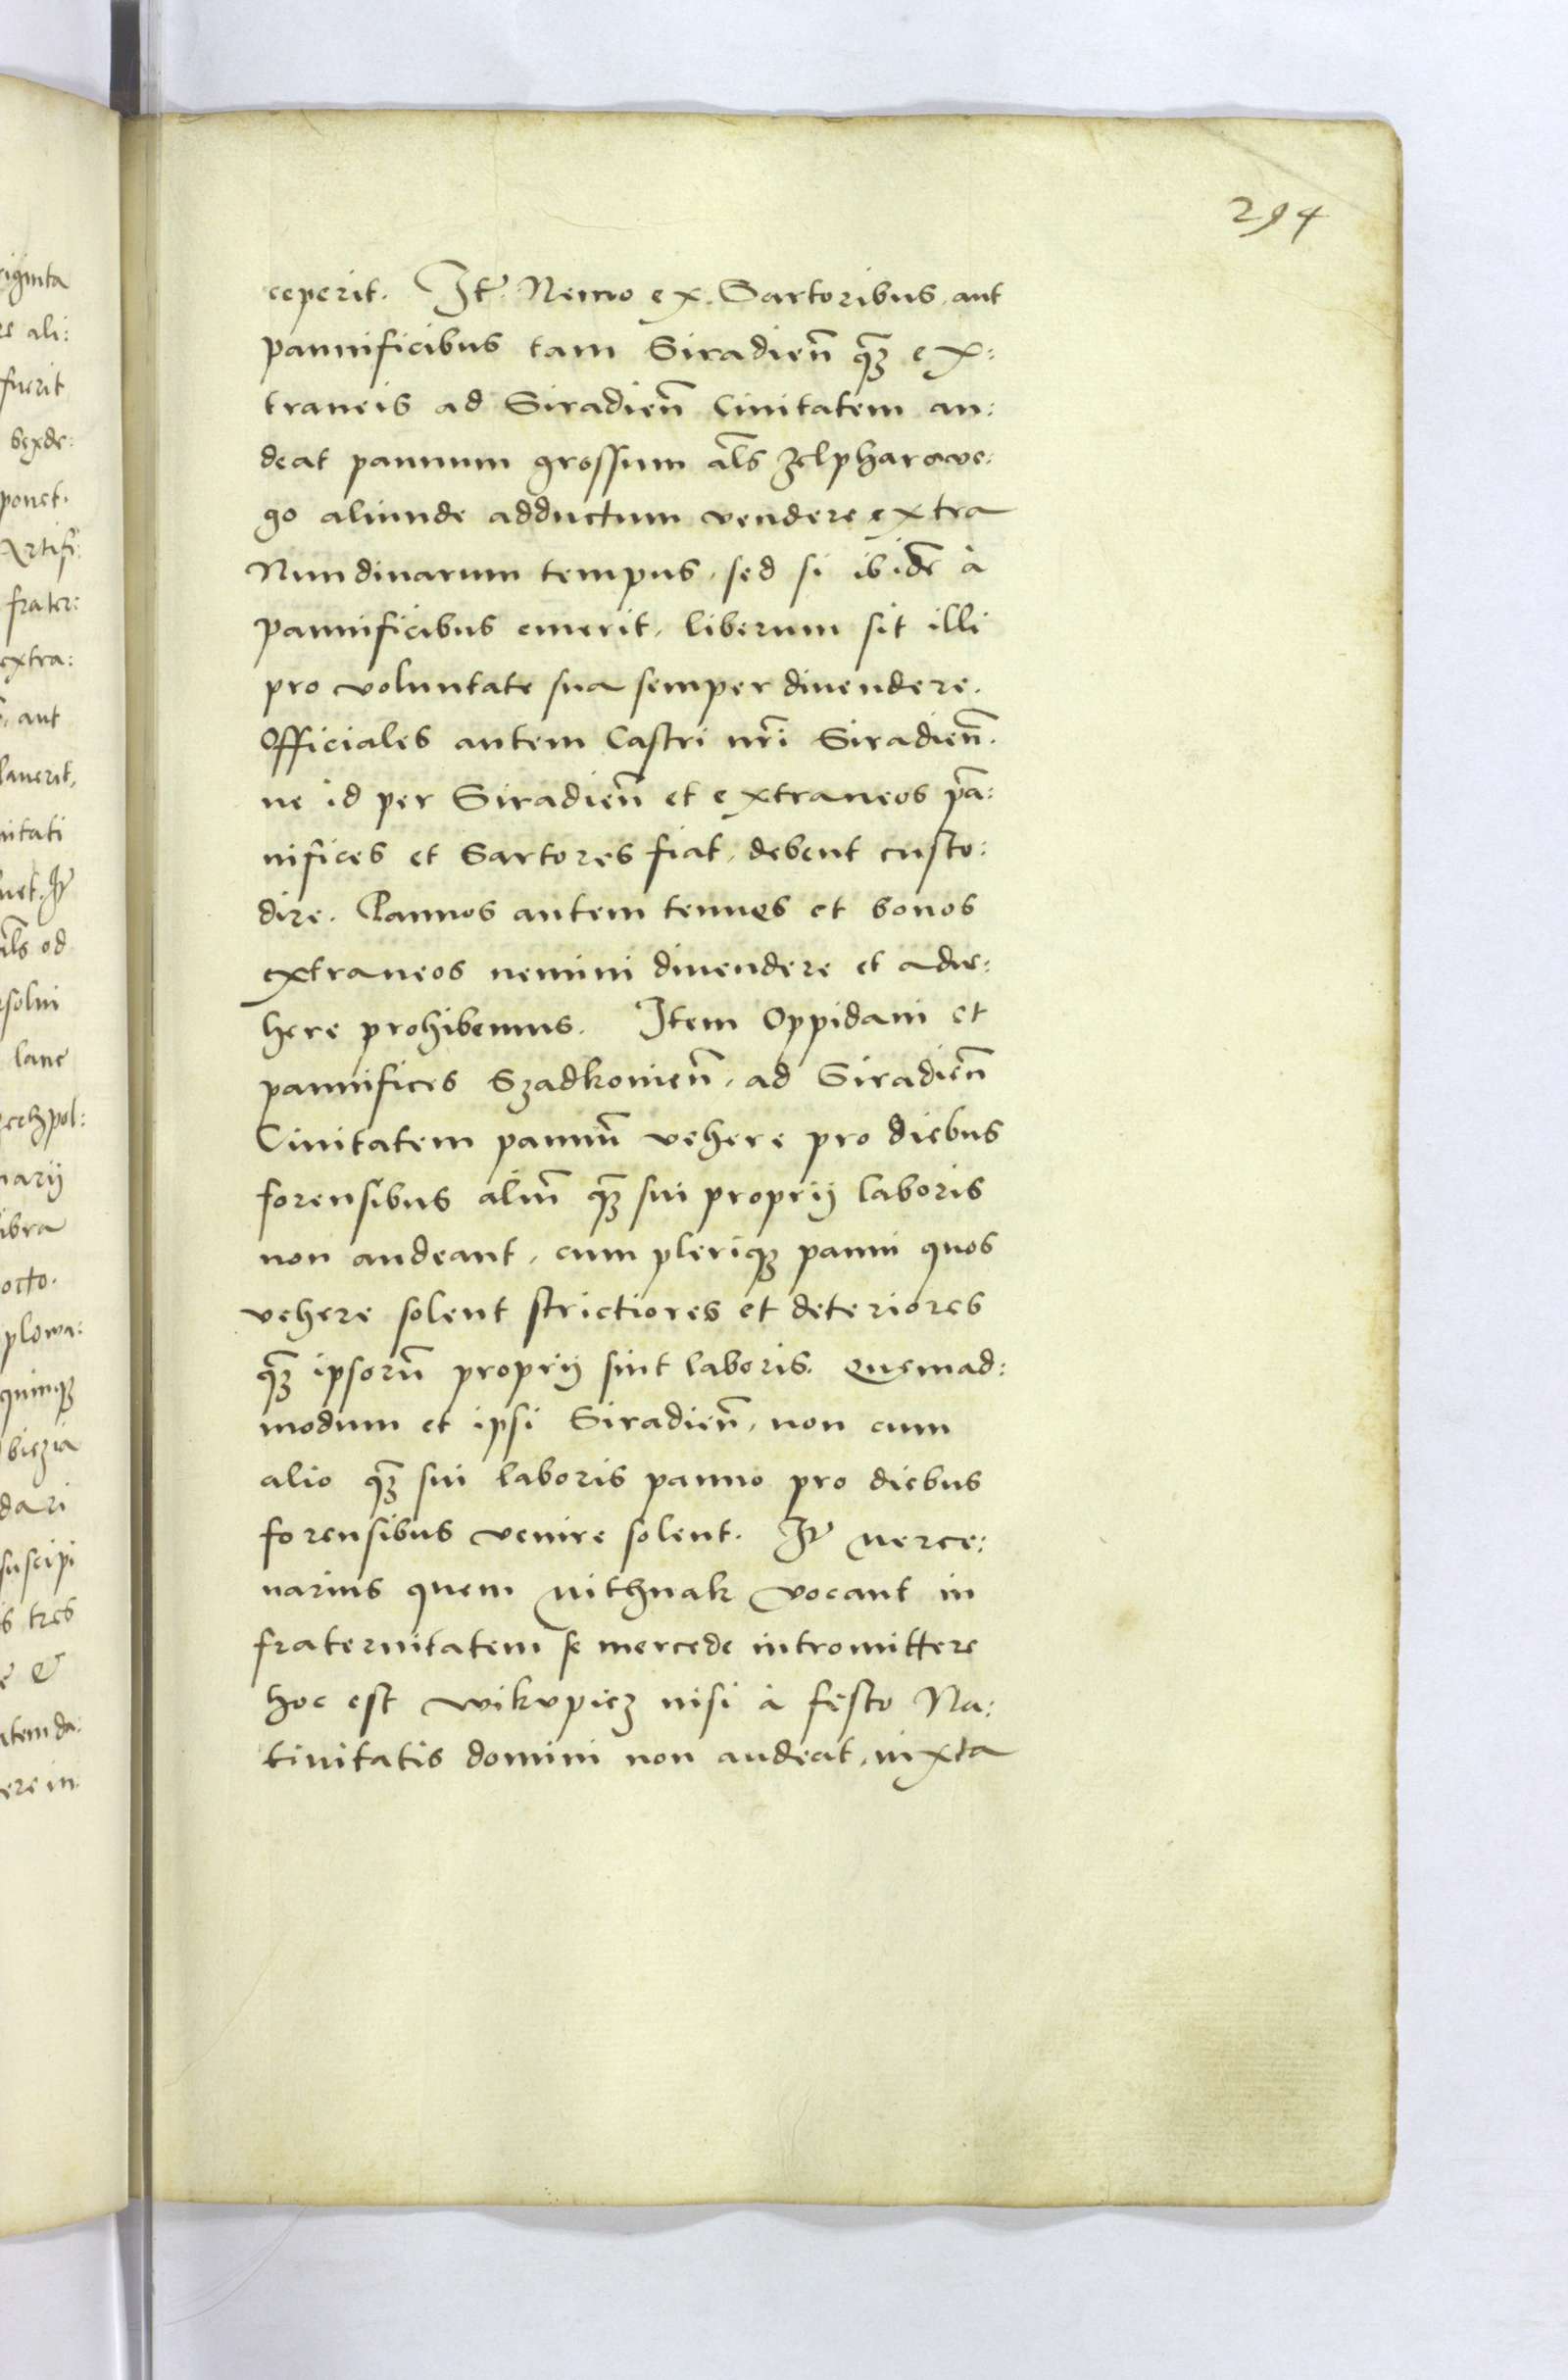 294
ceperit. It̃ Nemo ex Sartoribus aut
pannificibus tam Siradieñ qꝫ̃ ex:
traneis ad Siradieñ Ciuitatem au:
deat pannum grossum al̃s zelpharowe:
go aliunde adductum vendere extra
Nundinarum tempus, sed si ibidẽ à
pannificibus emerit, liberum sit illi
pro voluntate sua semper diuendere.
Officiales autem Castri nr̃i Siradieñ.
ne id per Siradieñ et extraneos pã:
nifices et Sartores fiat, debent custo:
dire. Pannos autem tenues et bonos
extraneos nemini diuendere et adue:
here prohibemus. Item Oppidani et
pannifices Szadkouieñ, ad Siradieñ
Ciuitatem pannũ vehere pro diebus
forensibus aliũ qꝫ̃ sui proprij laboris
non audeant, cum pleriqꝫ panni quos
vehere solent strictiores et deteriores
qꝫ̃ ipsorũ proprij sint laboris. Quemad:
modum et ipsi Siradieñ, non cum
alio qꝫ̃ sui laboris panno pro diebus
forensibus venire solent. It̃ Merce:
narius quem Mithnak vocant in
fraternitatem se mercede intromittere
hoc est wikupicz nisi à festo Na:
tiuitatis domini non audeat, iuxta
iginta
re ali:
fuerit
sexde:
ponet.
Artifi:
frater:
extra:
aut
lauerit,
nitati
net. It̃
al̃s od
solui
lane
czechpol:
narij
libra
octo.
plowa:
quinqꝫ
biczia
dari
suscipi
is tres
&
item da:
ere in